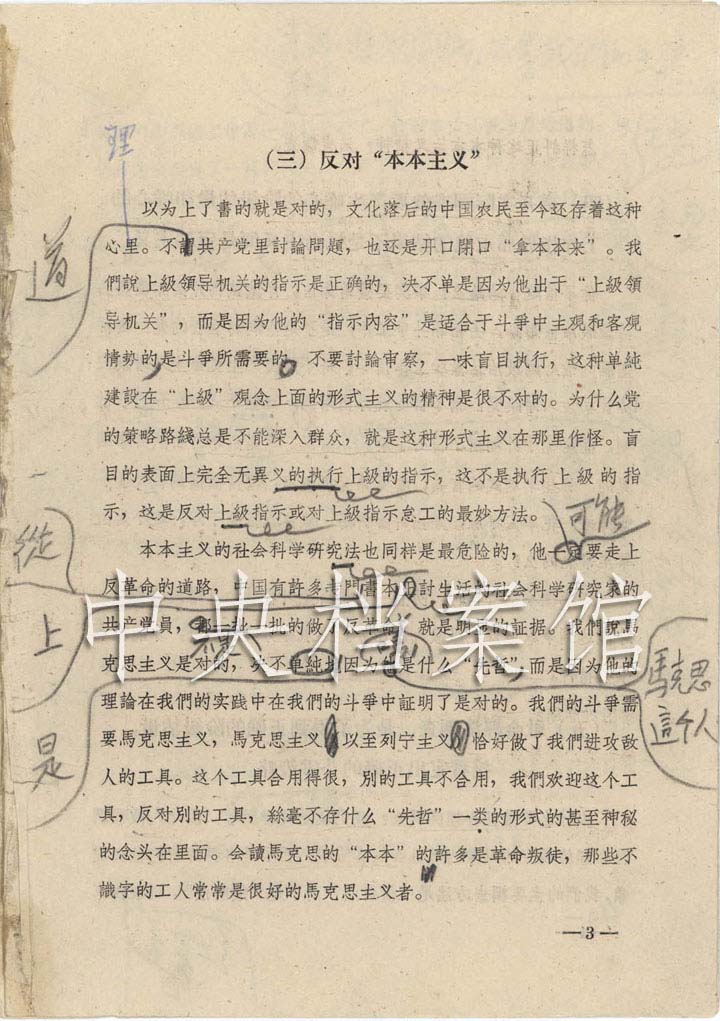 理
（三）反对“本本主义”
以为上了書的就是对的，文化落后的中国农民至今还存着这种
心里。不謂共产党里討論問題，也还是开口閉口“拿本本来”。我
道
們說上級領导机关的指示是正确的，决不单是因为他出于“上級領
导机关”，而是因为他的“指示內容”是适合于斗爭中主观和客观
情势的是斗爭所需要的。不要討論审察，一味盲目执行，这种单純
建設在“上級”观念上面的形式主义的精神是很不对的。为什么党
的策略路綫总是不能深入群众，就是这种形式主义在那里作怪。盲
目的表面上完全无異义的执行上級的指示，这不是执行上級的指
示，这是反对上級指示或对上級指示怠工的最妙方法。
可能
從
本本主义的社会科学研究法也同样是最危险的，他一定要走上
反革命的道路，中国有許多专門書本討生活的社会科学研究家的
上
共产党員，一批一批的做了反革命，就是明显的証据。我們說馬
克思主义是对的，决不单純因为是什么“先哲”而是因为他的
馬克思
這个人
理論在我們的实践中在我們的斗爭中証明了是对的。我們的斗爭需
要馬克思主义，馬克思主义以至列宁主义恰好做了我們进攻敌
是
人的工具。这个工具合用得很，別的工具不合用，我們欢迎这个工
具，反对別的工具，絲毫不存什么“先哲”一类的形式的甚至神秘
的念头在里面。会讀馬克思的“本本”的許多是革命叛徒，那些不
識字的工人常常是很好的馬克思主义者。
—3—
中央档案馆